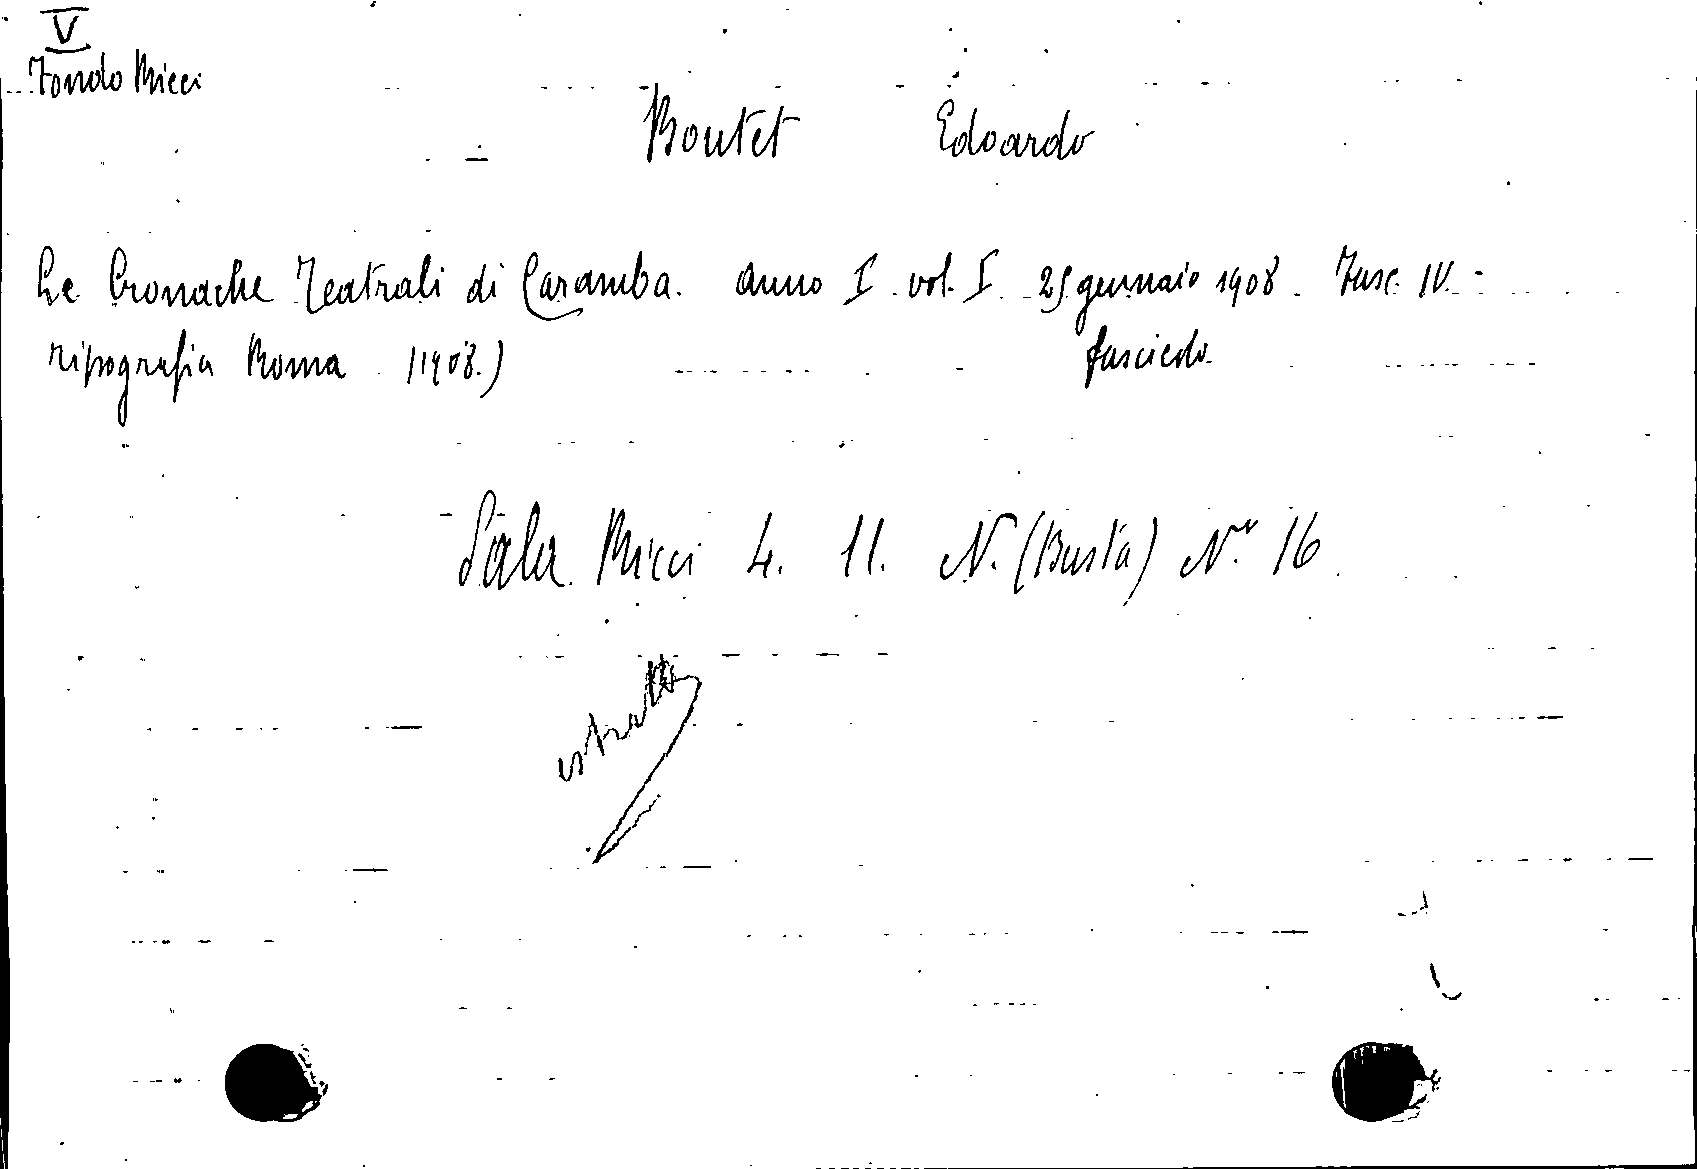 V
Fondo Ricci
Boutet Edoardo
Le Cronache Teatrali di Caramba. Anno I vol. I 25 gennaio 1908. Fasc. IV -
Tipografia Roma (1908.) fascicolo
Sala Ricci 4. 11. N. (Busta) N° 16
estratto